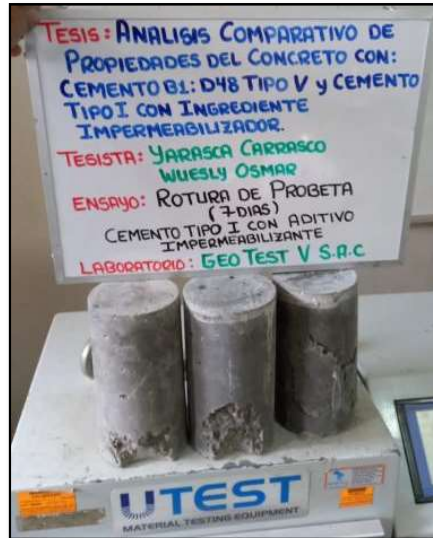 TESIS: ANALISIS COMPARATIVO DE
PROPIEDADES DEL CONCRETO CON:
CEMENTO B1: D48 TIPO V y CEMENTO
TIPO I CON INGREDIENTE
IMPERMEABILIZADOR.
TESISTA: YARASCA CARRASCO
WUESLY OSMAR
ENSAYO: ROTURA DE PROBETA
(7 DIAS)
CEMENTO TIPO I CON ADITIVO
IMPERMEABILIZANTE
LABORATORIO: GEO TEST V S.A.C
UTEST
MATERIAL TESTING EQUIPMENT